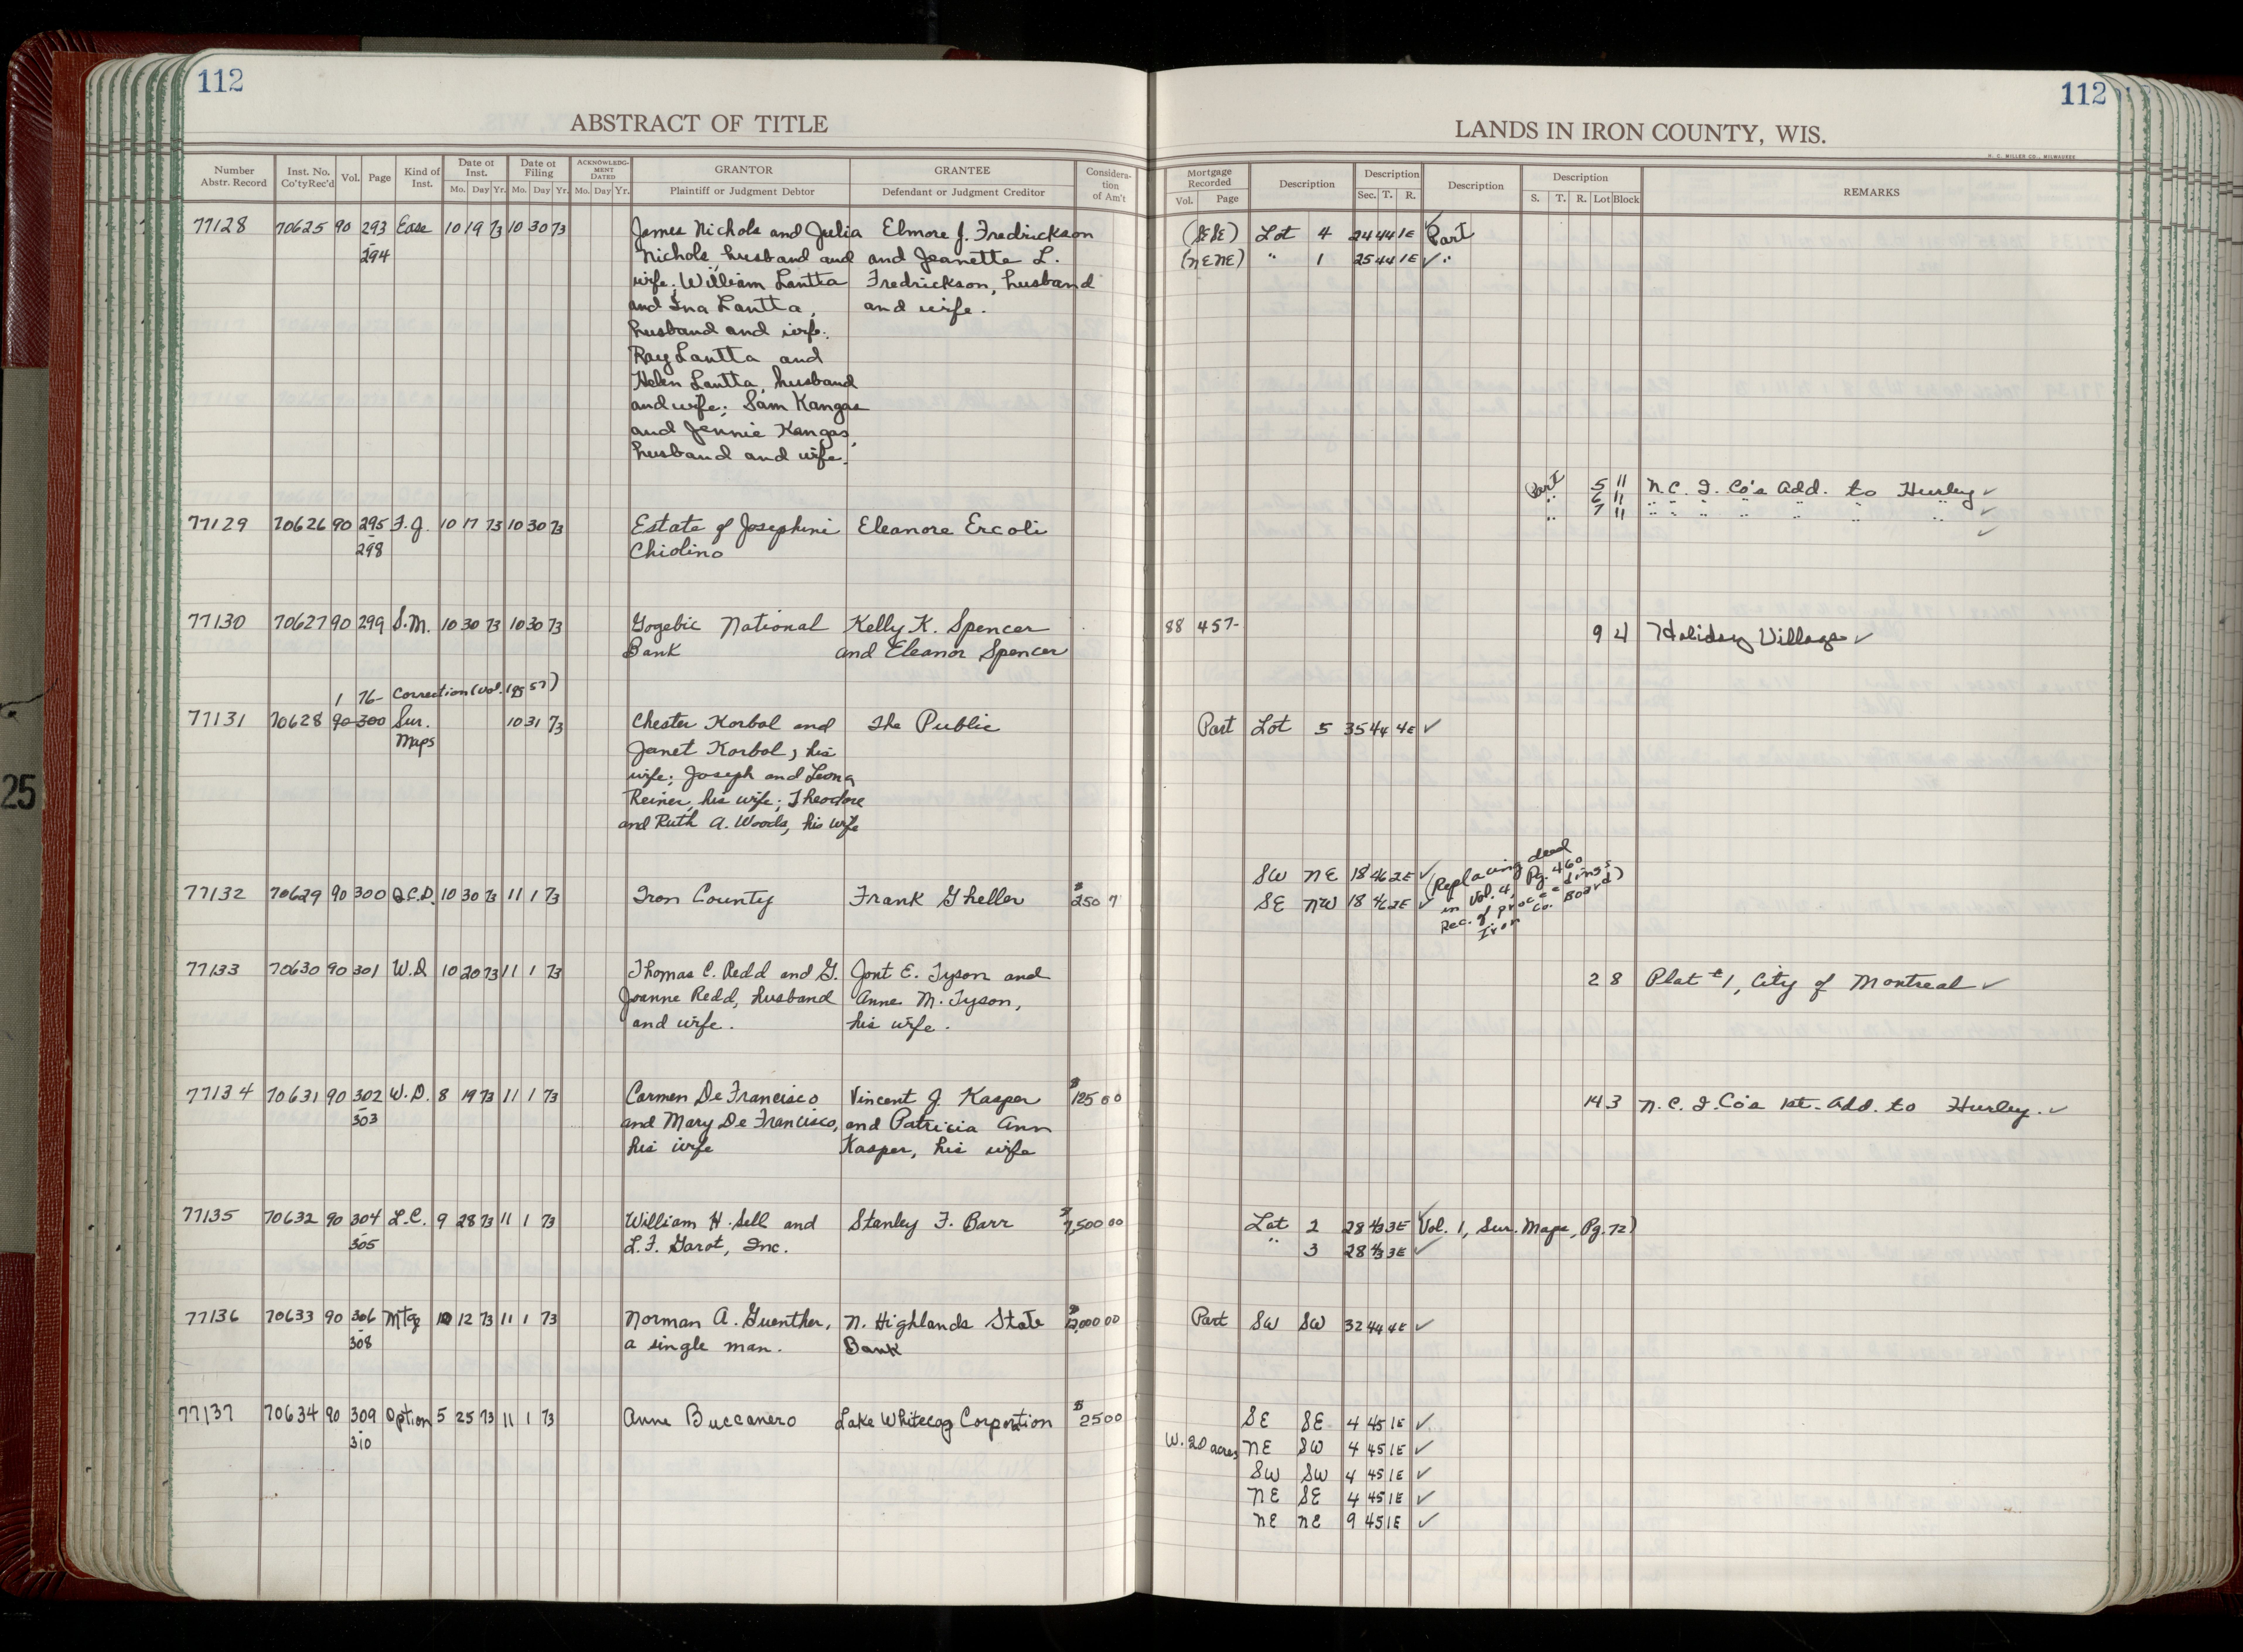 112
ABSTRACT OF TITLE
Number Abstr. Record | Inst. No. Co'tyRec'd | Vol. | Page | Kind of Inst. | Date of Inst. Mo. Day Yr. | Date of Filing Mo. Day Yr. | ACKNOWLEDGMENT DATED Mo. Day Yr. | GRANTOR Plaintiff or Judgment Debtor | GRANTEE Defendant or Judgment Creditor | Consideration of Am't
77128 70625 90 293 Ease 10 19 73 10 30 73 James Nichols and Julia Elmore J. Fredrickson
294 Nichols husband and and Jeanette L.
wife; William Lantta Fredrickson, husband
and Ina Lantta, and wife.
husband and wife.
Ray Lantta and
Helen Lantta, husband
and wife; Sam Kangas
and Jennie Kangas,
husband and wife.
77129 70626 90 295 F.J. 10 17 73 10 30 73 Estate of Josephine Eleanore Ercoli
298 Chiolino
77130 70627 90 299 S.M. 10 30 73 10 30 73 Gogebic National Kelly K. Spencer
Bank and Eleanor Spencer
1 76- Correction (Vol. 1
77131 70628 90 300 Sur. 10 31 73 Chester Korbal and The Public
Maps Janet Korbal, his
wife; Joseph and Leona
Reiner, his wife; Theodore
and Ruth A. Woods, his wife
77132 70629 90 300 Q.C.D. 10 30 73 11 1 73 Iron County Frank Gheller $250
77133 70630 90 301 W.D 10 20 73 11 1 73 Thomas C. Redd and G. Jont E. Tyson and
Joanne Redd, husband Anne M. Tyson,
and wife. his wife.
77134 70631 90 302 W.D. 8 19 73 11 1 73 Carmen De Francisco Vincent J. Kasper $125 00
303 and Mary De Francisco, and Patricia Ann
his wife Kasper, his wife
77135 70632 90 304 L.C. 9 28 73 11 1 73 William H. Sell and Stanley F. Barr $7,500 00
305 L.F. Garot, Inc.
77136 70633 90 306 Mtg 10 12 73 11 1 73 Norman A. Guenther, N. Highlands State $2,000 00
308 a single man. Bank
77137 70634 90 309 Option 5 25 73 11 1 73 Anne Buccanero Lake Whitecap Corportion $25 00
310
112
LANDS IN IRON COUNTY, WIS.
H. C. MILLER CO., MILWAUKEE
Mortgage Recorded Vol. Page | Description | Description Sec. T. R. | Description | Description S. T. R. Lot Block | REMARKS
(SESE) Lot 4 24 44 1E ✓ Part
(NENE) " 1 25 44 1E ✓ "
Part 5 11 N.C. I. Co's Add. to Hurley ✓
" 6 11 " " " " " " " ✓
" 7 11 ✓
88 457- 9 4 Holiday Village ✓
Part Lot 5 35 44 4E ✓
SW NE 18 46 2E ✓ (Replacing deed
SE NW 18 46 2E ✓ in Vol. 4, Pg. 460
Rec. of proceedings
Iron Co. Board)
2 8 Plat #1, City of Montreal ✓
14 3 N.C. I. Co's 1st. Add. to Hurley. ✓
Lot 2 28 43 3E ✓ Vol. 1, Sur. Maps, Pg. 72)
" 3 28 43 3E ✓
Part SW SW 32 44 4E ✓
SE SE 4 45 1E ✓
W. 20 acres NE SW 4 45 1E ✓
SW SW 4 45 1E ✓
NE SE 4 45 1E ✓
NE NE 9 45 1E ✓
25